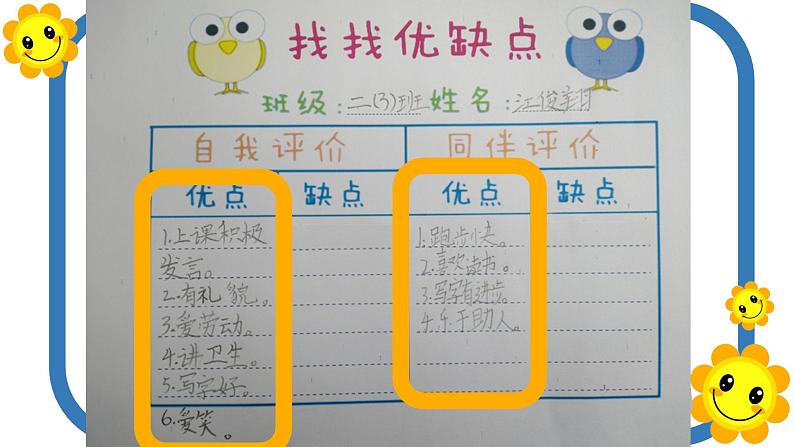 找找优缺点
班级：二(3)班 姓名：江俊翔
自我评价 同伴评价
优点 缺点 优点 缺点
1.上课积极
发言。
2.有礼貌。
3.爱劳动。
4.讲卫生。
5.写字好。
6.爱笑。
1.跑步快。
2.喜欢读书。
3.写字有进步。
4.乐于助人。